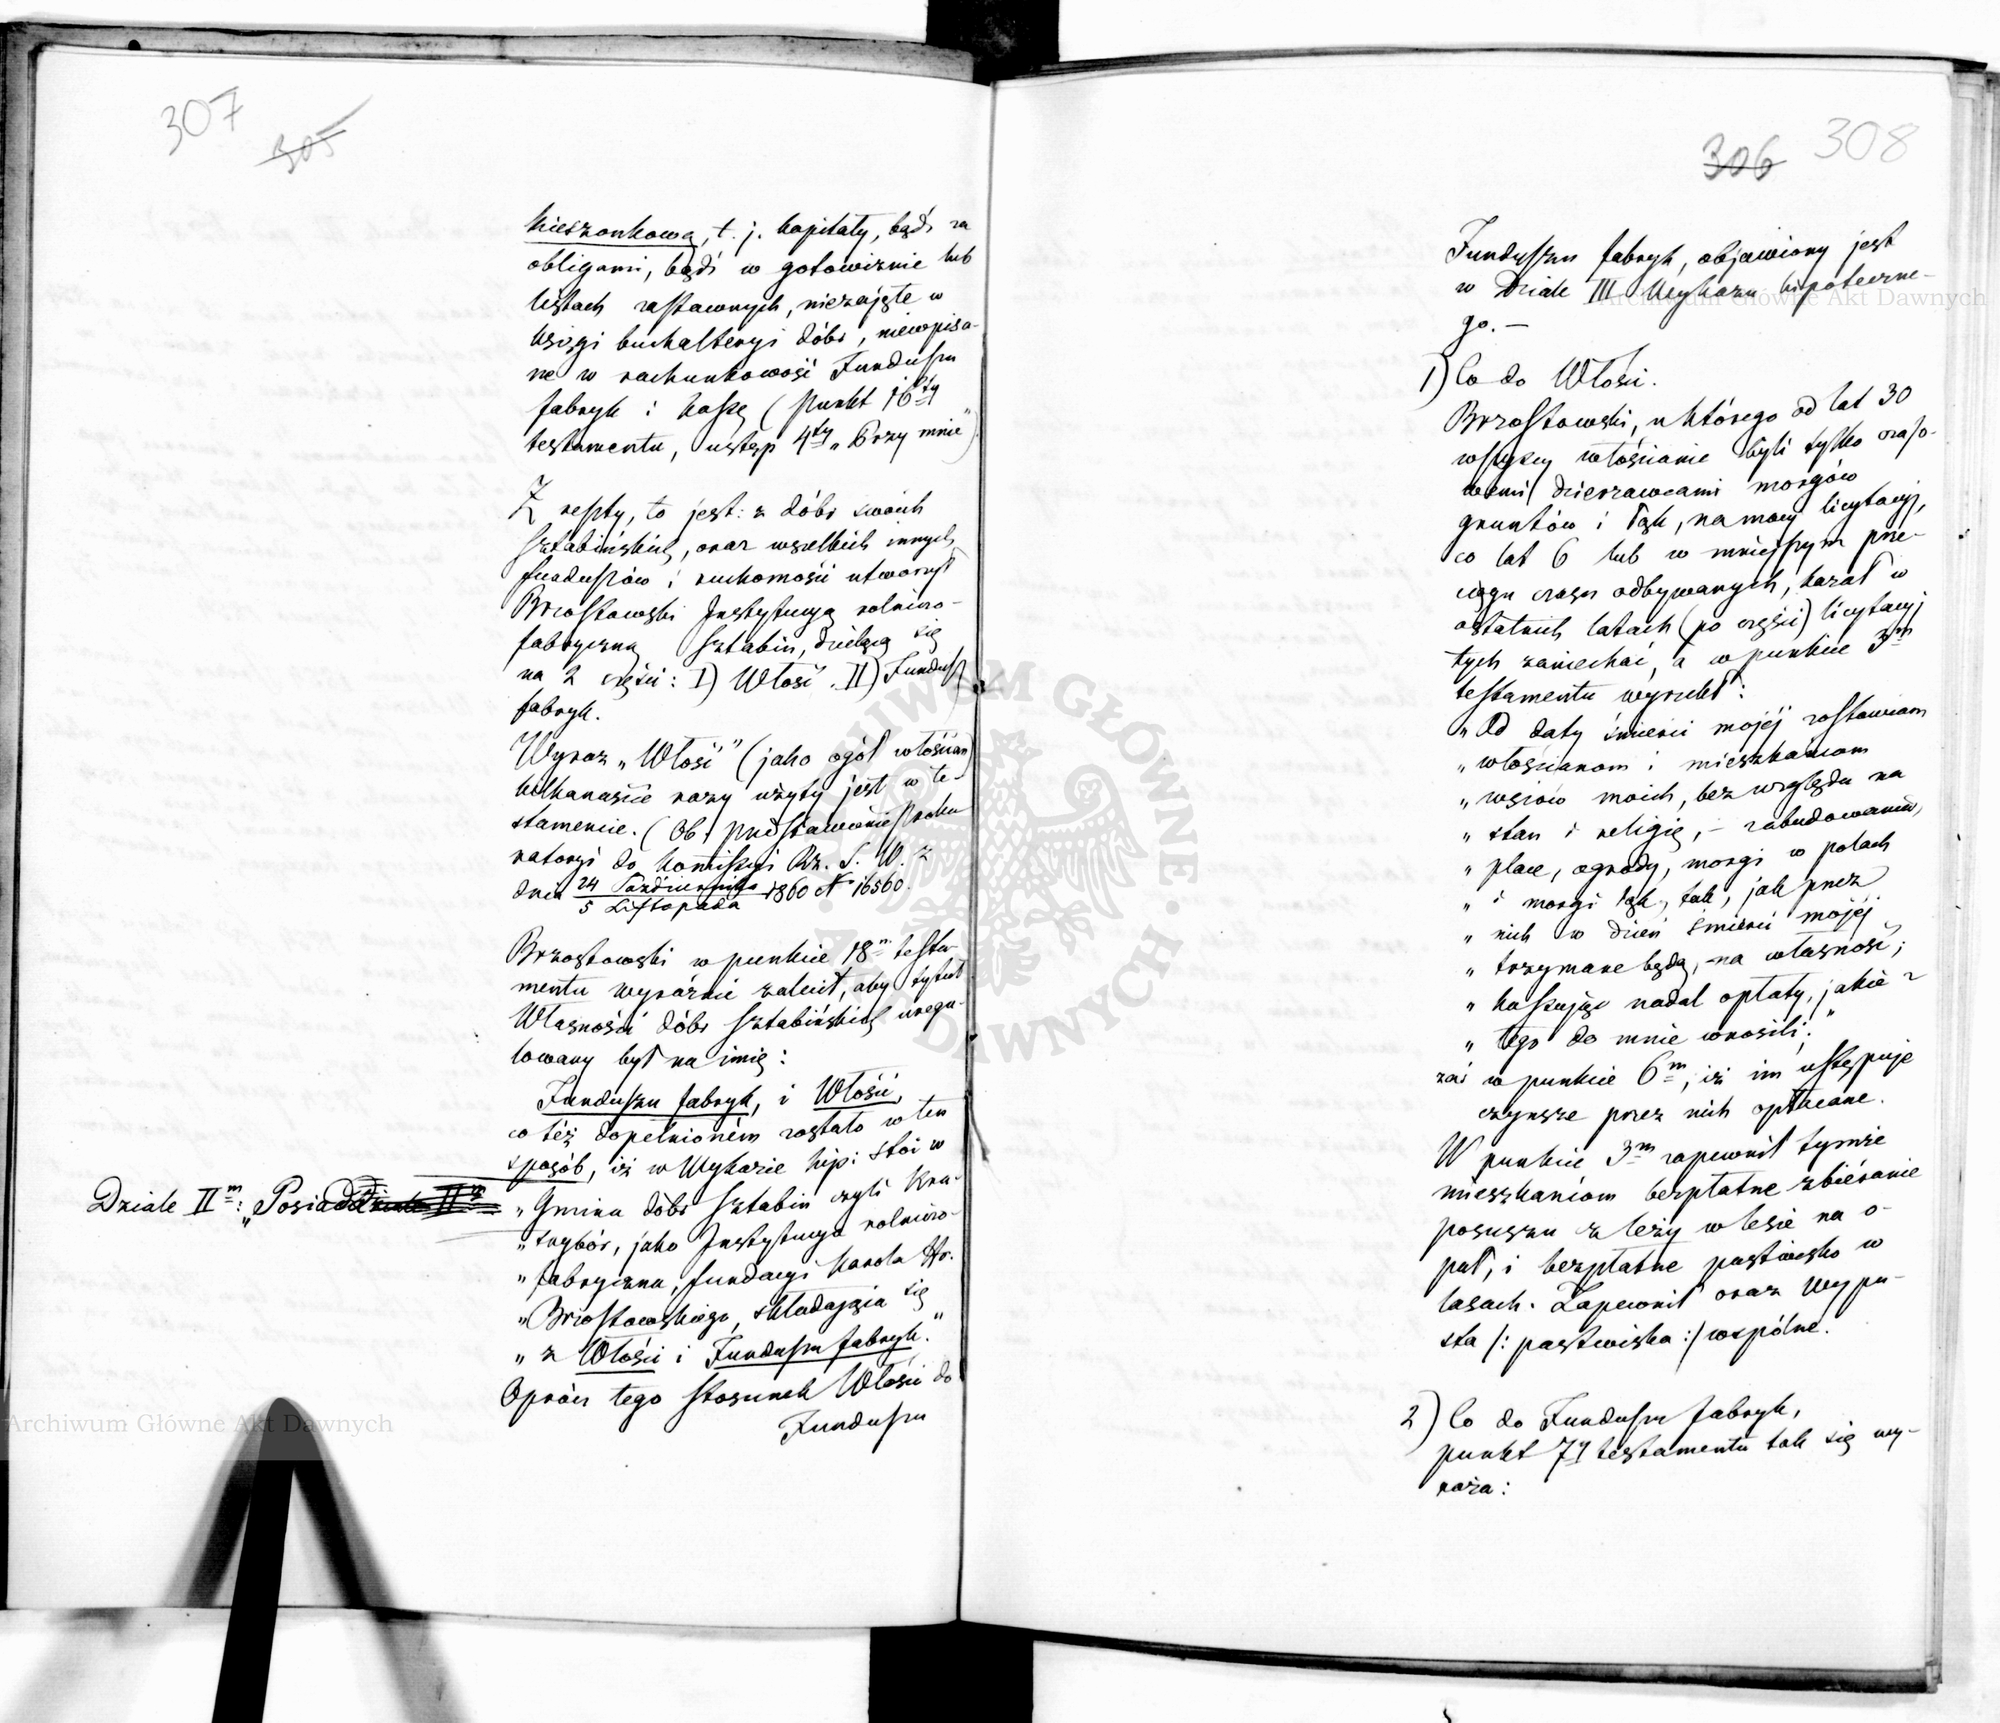 307
305
kieszonkową, t. j. kapitały, bądź za
obligami, bądź w gotowiznie lub
listach zastawnych, niezajęte w
księgi buchalteryi dóbr, niewpisa-
ne w rachunkowość Funduszu
fabryk i kassę (punkt 16ty
testamentu, ustęp 4ty „Przy mnie”)
Z reszty, to jest: z dóbr swoich
Sztabińskich, oraz wszelkich innych
funduszów i ruchomości utworzył
Brzostowski Instytucyą rolniczo-
fabryczną Sztabin, dzieląc się
na 2 części: I) Włość. II) Fundusz
fabryk.
Wyraz „Włość” (jako ogół włościan)
kilkanaście razy użyty jest w te-
stamencie. (Ob. przedstawienie Proku
ratoryi do Kommissyi Rz. S. W. z
dnia 24 Października / 5 Listopada 1860 N° 16560.
Brzostowski w punkcie 18m testa-
mentu wyraźnie zalecił, aby tytuł
Własności dóbr Sztabińskich uregu-
lowany był na imię:
Funduszu fabryk, i Włości,
co téż dopełnioném zostało w ten
sposób, iż w Wykazie hip: stoi w
Dziale IIm: „Posiada
„Gmina dóbr Sztabin czyli Kra-
„sybór, jako Instytucya rolniczo-
„fabryczna, fundacyi Karola Hr.
„Brzostowskiego, składająca się
„z Włości i Funduszu fabryk.”
Oprócz tego stosunek Włości do
Funduszu
306 308
Funduszu fabryk, objawiony jest
w Dziale III Wykazu hipoteczne-
go. —
1) Co do Włości.
Brzostowski, u którego od lat 30
wszyscy włościanie byli tylko czaso-
wemi dzierzawcami morgów
gruntów i łąk, na mocy licytacyj,
co lat 6 lub w mniejszym prze-
ciągu czasu odbywanych, kazał w
ostatnich latach (po części) licytacyj
tych zaniechać, a w punkcie 3m
testamentu wyrzekł:
„Od daty śmierci mojéj zostawiam
„włościanom i mieszkańcom
„wsiów moich, bez względu na
„stan i religię, — zabudowania,
„place, ogrody, morgi w polach
„i morgi łąk, tak, jak przez
„nich w dzień śmierci mojéj
„trzymane będą, — na własność;
„kassując nadal opłaty, jakie z
„tego do mnie wnosili;”
zaś w punkcie 6m, iż im ustępuje
czynsze przez nich opłacane.
W punkcie 3m zapewnił tymże
mieszkańcom bezpłatne zbiéranie
posuszu z leży w lesie na o-
pał, i bezpłatne pastwisko w
lasach. Zapewnił oraz wypu-
sta /: pastwiska :/ wspólne.
2) Co do Funduszu fabryk,
punkt 7y testamentu tak się wy-
raża:
Archiwum Główne Akt Dawnych
Archiwum Główne Akt Dawnych
ARCHIWUM GŁÓWNE AKT DAWNYCH